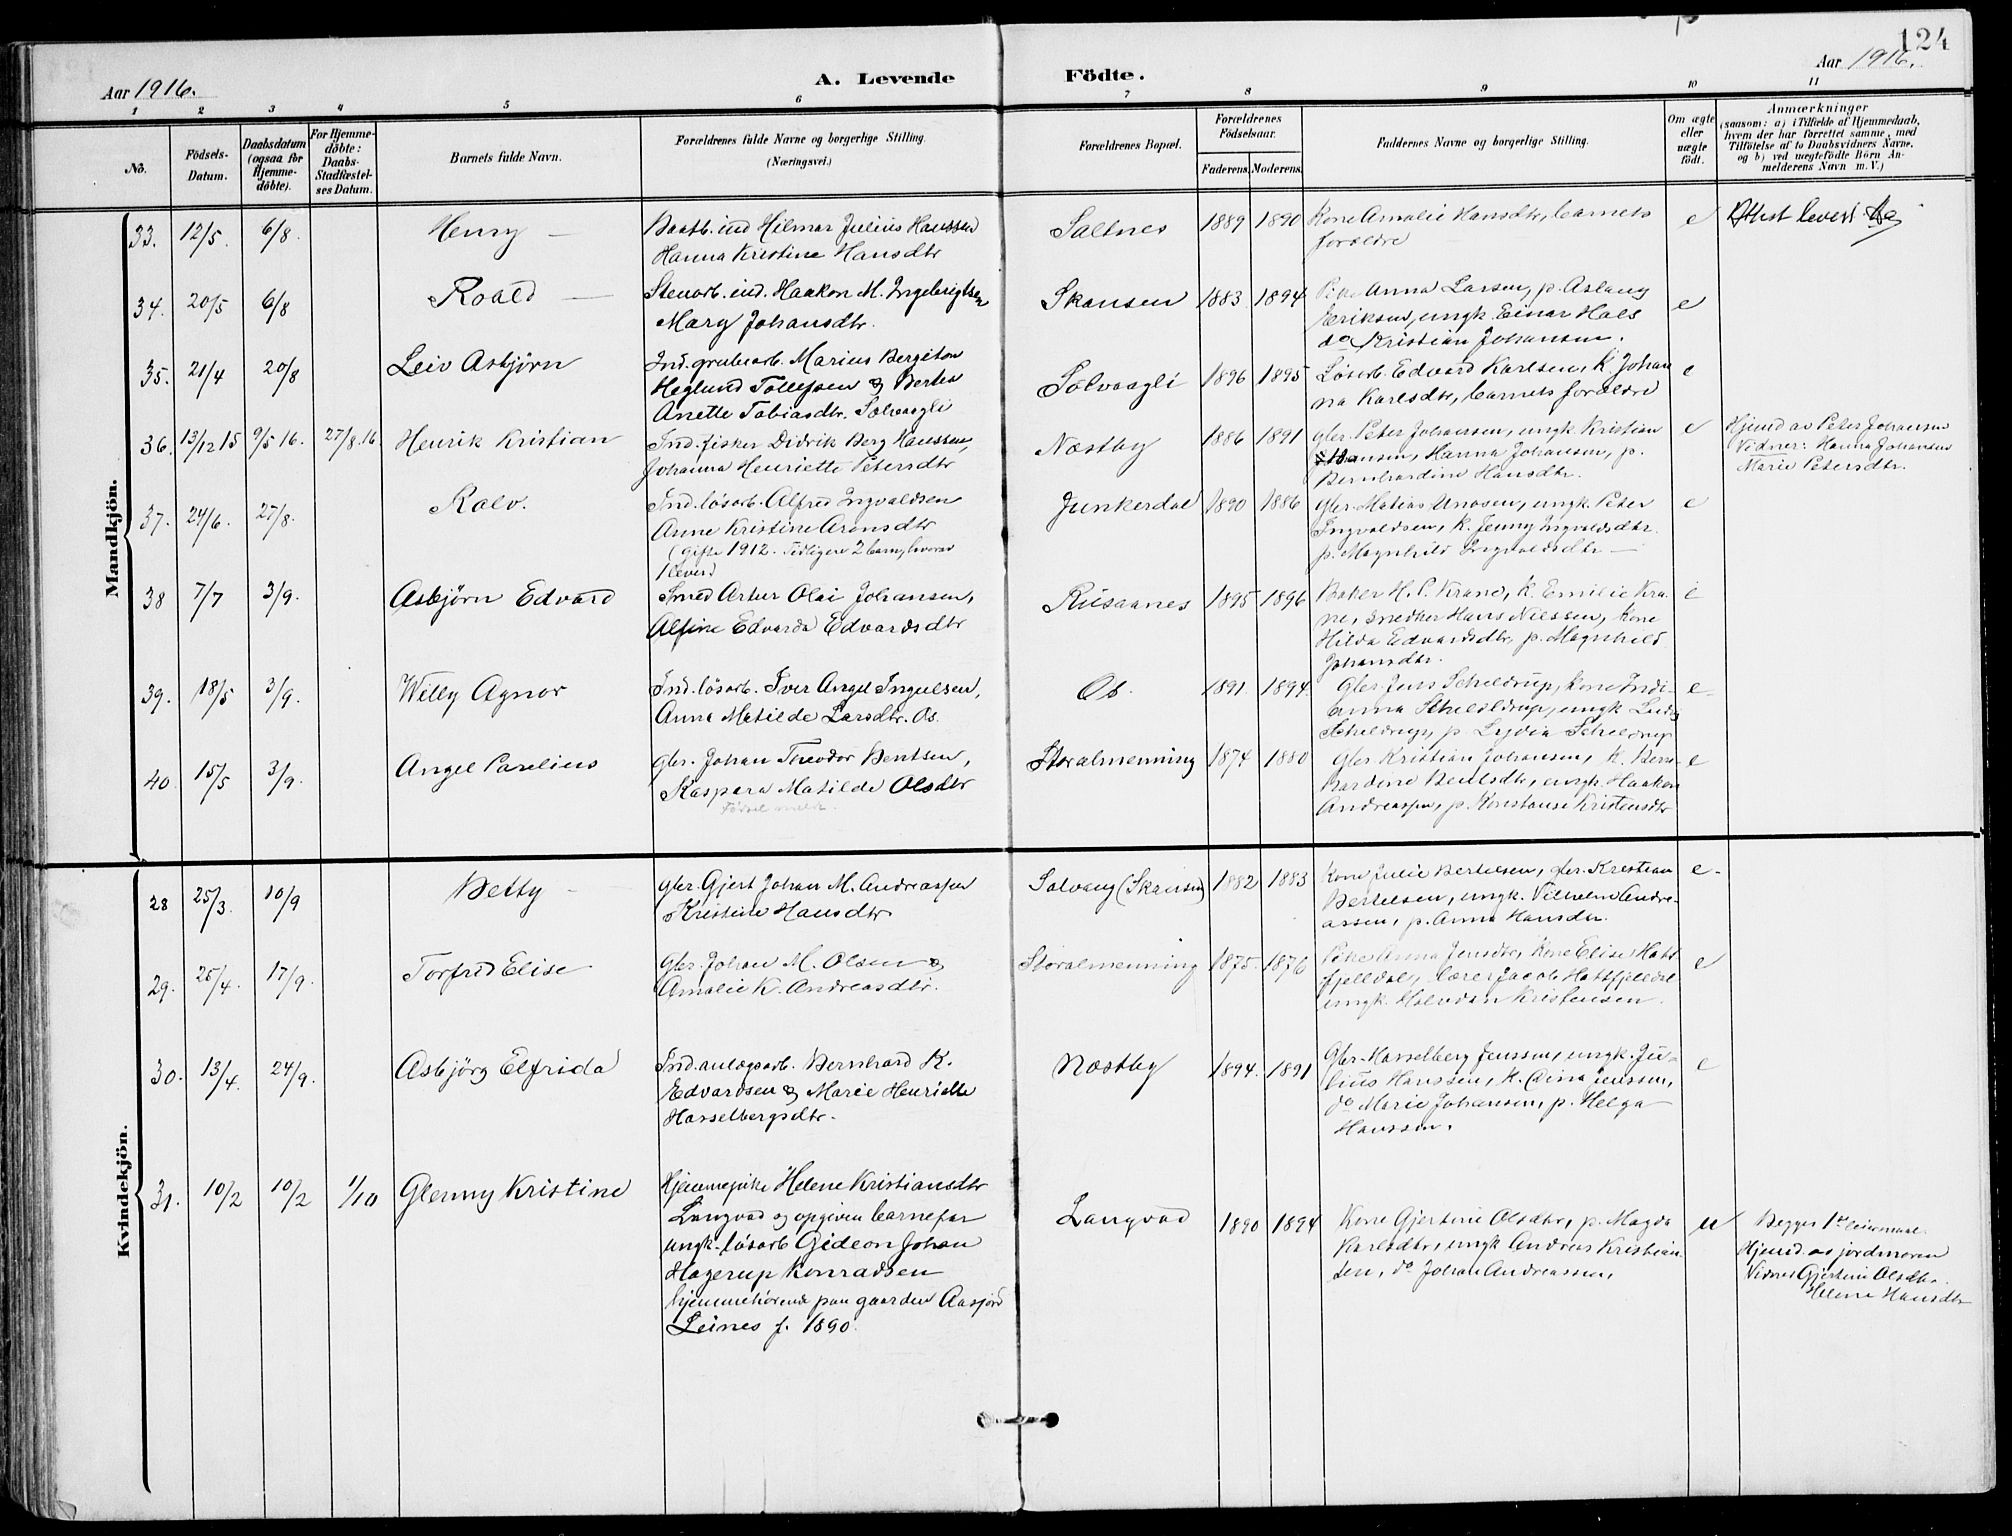 124
Aar 1916. A. Levende Födte. Aar 1916.
1 2 3 4 5 6 7 8 9 10 11
No. Födsels-Datum. Daabsdatum (ogsaa for Hjemme-döbte). For Hjemme-döbte: Daabs-Stadfæstel-ses Datum. Barnets fulde Navn. Forældrenes fulde Navne og borgerlige Stilling. (Næringsvei.) Forældrenes Bopæl. Forældrenes Födselsaar. Faderens. Moderens. Faddernes Navne og borgerlige Stilling. Om ægte eller uægte födt. Anmærkninger (saasom: a) i Tilfælde af Hjemmedaab, hvem der har forrettet samme, med Tilföielse af to Daabsvidners Navne, og b) ved uægtefödte Börn An-melderens Navn m. V.)
Mandkjön.
33. 12/5. 6/8. Henry — Baatb. ind Hilmar Julius Hanssen Saltnes 1889 1890 Kone Amalie Hansdtr, barnets e Attest levert
Hanna Kristine Hansdtr forældre
34. 20/5 6/8 Roald — Stenarb. ind. Haakon M. Ingebrigtsen Skansen 1883 1894 Pike Anna Larsen, p. Aslaug e
Mary Johansdtr. Eriksen, ungk Einar Hals
do Kristian Johansen.
35. 21/4 20/8 Leiv Asbjörn Ind. grubearb. Marius Bergiton Solvaagli 1896 1895 Lösarb. Edvard Karlsen, K. Johan e
Heglund Tollefsen & Berta na Karlsdtr, barnets forældre
Anette Tobiasdtr. Solvaagli
36. 13/12 15 9/5 16. 27/8.16 Henrik Kristian Ind. fisker Didrik Berg Hanssen, Næstby 1886 1891 gbr. Peter Johansen, ungk. Kristian e Hjemd av Peter Johansen
Johanna Henriette Petersdtr Johansen, Hanna Johansen, p. Vidner: Hanna Johansen
Bernhardine Hansdtr. Marie Petersdtr.
37. 24/6. 27/8. Ralv. Ind. lösarb. Alfred Ingvaldsen Junkerdal 1890 1886 gbr. Matias Unasen, ungk Peter e
Anne Kristine Aronsdtr Ingvaldsen, k. Jenny Ingvaldsdtr.
(gifte 1912. Tidligere 2 barn, hvorav p. Magnhild Ingvaldsdtr —
1 lever)
38 7/7 3/9. Asbjörn Edvard Smed Artur Olai Johansen, Rusaanes 1895 1896 Baker H. P. Krane, k. Emilie Kra- e
Alfine Edvarda Edvardsdtr ne, snedker Hans Nilssen, Kone
Hilda Edvardsdtr, p. Magnhild
Johansdtr.
39. 18/5 3/9. Willy Agnor Ind. lösarb. Iver Angel Ingulsen, Os. 1891. 1894. Gbr. Jens Scheldrup, kone Indi- e.
Anna Matilde Larsdtr. Os. anna Scheldrup, ungk Ludv
Scheldrup, p. Lydia Scheldrup
40 15/5 3/9. Angel Parelius gbr. Johan Theodor Bentsen, Storalmenning 1874 1880 Gbr Kristian Johansen, k. Bern- e
Kaspara Matilde Olsdtr hardine Bentsdtr, ungk. Haakon
Födsel meldt Andreassen, p. Konstanse Kristensdtr
Kvindekjön.
28 25/3. 10/9 Betty — gbr. Gjert Johan M. Andreassen Solvang (Skansen) 1882 1883 Kone Julie Bertelsen, gbr. Kristian e.
Kristine Hansdtr Bertelsen, ungk. Vilhelm Andre-
assen, p. Anna Hansdtr.
29. 25/4. 17/9. Torfrid Elise gbr. Johan M. Olsen & Storalmenning 1875. 1876 Pike Anna Jensdtr, Kone Elise Hatt e
Amalie K. Andreasdtr. fjelldal, lærer Jacob Hattfjelldal
ungk. Halvdan Kristensen.
30. 13/4. 24/9. Asbjörg Elfrida Ind. anlægsarb. Bernhard K. Næstby 1894. 1891 Gbr. Hasselberg Jenssen, ungk. Ju- e
Edvardsen & Marie Henriette lius Hanssen, k. Caina Jenssen,
Hasselbergsdtr. do Marie Johansen, p. Helga
Hanssen.
31. 10/2 10/2 1/10 Glenny Kristine Hjemmepike Helene Kristiansdtr Langvad 1890 1894 Kone Gjertine Olsdtr, p. Magda u Begges 1ste leiermaal.
Langvad og opgiven barnefar Karlsdtr, ungk Andreas Kristian- Hjemd. av jordmoren
ungk. lösarb Gideon Johan sen, do Johan Andreassen. Vidner Gjertine Olsdtr.
Hagerup Konradsen Helene Hansdtr
hjemmehörende paa gaarden Aasjord
Leines f. 1890.